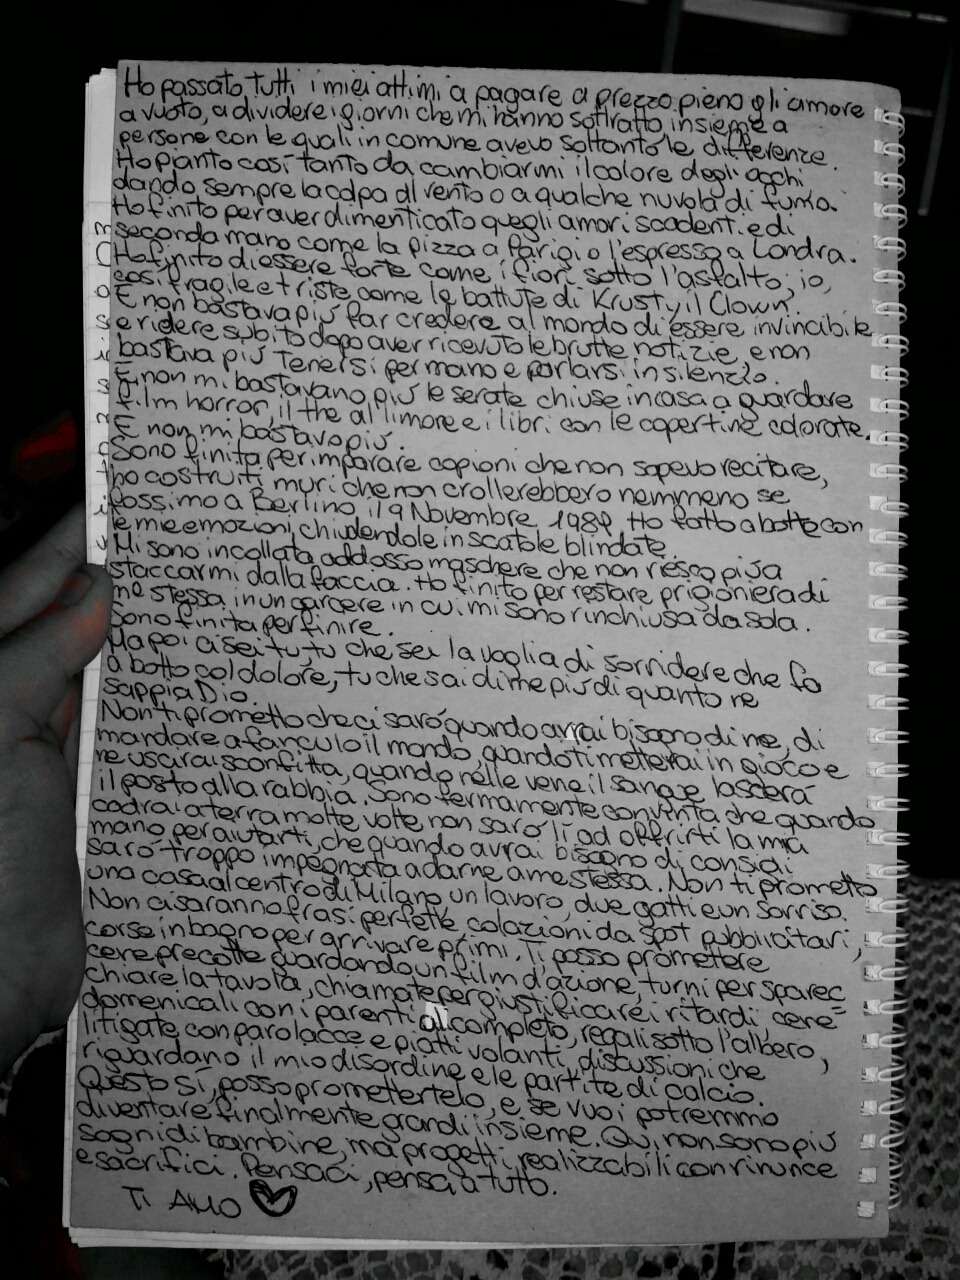 Ho passato tutti i miei attimi a pagare a prezzo pieno gli amore
a vuoto, a dividere i giorni che mi hanno sottratto insieme a
persone con le quali in comune avevo soltanto le differenze.
Ho pianto così tanto da cambiarmi il colore degli occhi
dando sempre la colpa al vento o a qualche nuvola di fumo.
Ho finito per aver dimenticato quegli amori scadenti e di
seconda mano come la pizza a Parigi o l'espresso a Londra.
Ho finito di essere forte come i fiori sotto l'asfalto, io,
così fragile e triste come le battute di Krusty il Clown.
E non bastava più far credere al mondo di essere invincibile
e ridere subito dopo aver ricevuto le brutte notizie, e non
bastava più tenersi per mano e parlarsi in silenzio.
E non mi bastavano più le serate chiuse in casa a guardare
film horror, il the al limore e i libri con le copertine colorate.
E non mi bastavo più.
Sono finita per imparare copioni che non sapevo recitare,
ho costruiti muri che non crollerebbero nemmeno se
fossimo a Berlino il 9 Novembre 1989. Ho fatto a botte con
le mie emozioni chiudendole in scatole blindate.
Mi sono incollata addosso maschere che non riesco più a
staccarmi dalla faccia. Ho finito per restare prigioniera di
me stessa in un carcere in cui mi sono rinchiusa da sola.
Sono finita per finire.
Ma poi ci sei tu, tu che sei la voglia di sorridere che fa
a botte col dolore, tu che sai di me più di quanto ne
sappia Dio.
Non ti prometto che ci sarò quando avrai bisogno di me, di
mandare a fanculo il mondo, quando ti metterai in gioco e
ne uscirai sconfitta, quando nelle vene il sangue lascerà
il posto alla rabbia. Sono fermamente convinta che quando
cadrai a terra molte volte non sarò lì ad offrirti la mia
mano per aiutarti, che quando avrai bisogno di considi
sarò troppo impegnata a darne a me stessa. Non ti prometto
una casa al centro di Milano, un lavoro, due gatti e un sorriso.
Non ci saranno frasi perfette, colazioni da spot pubblicitari,
corse in bagno per arrivare primi. Ti posso promettere
cene precotte guardando un film d'azione, turni per sparec
chiare la tavola, chiamate per giustificare i ritardi, cene
domenicali con i parenti al completo, regali sotto l'albero,
litigate con parolacce e piatti volanti, discussioni che
riguardano il mio disordine e le partite di calcio.
Questo sì, posso promettertelo, e se vuoi potremmo
diventare finalmente grandi insieme. Qui non sono più
sogni di bambine, ma progetti realizzabili con rinunce
e sacrifici. Pensaci, pensa a tutto.
Ti AMO